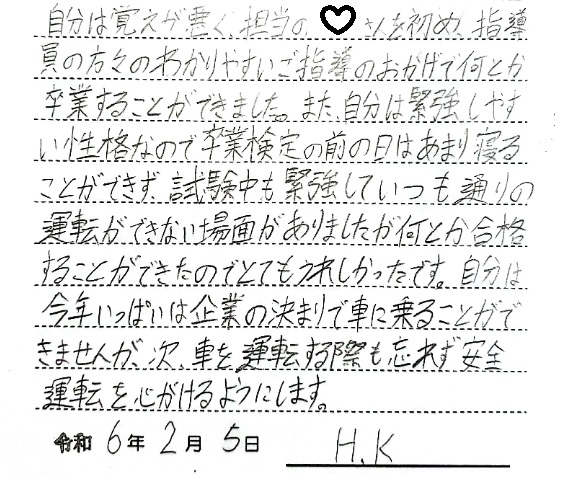 自分は覚えが悪く、担当の♡さんを初め、指導
員の方々のわかりやすいご指導のおかげで何とか
卒業することができました。また、自分は緊張しやす
い性格なので卒業検定の前の日はあまり寝る
ことができず、試験中も緊張していつも通りの
運転ができない場面がありましたが何とか合格
することができたのでとてもうれしかったです。自分は
今年いっぱいは企業の決まりで車に乗ることがで
きませんが、次、車を運転する際も忘れず安全
運転を心がけるようにします。
令和 6年 2月 5日 H.K